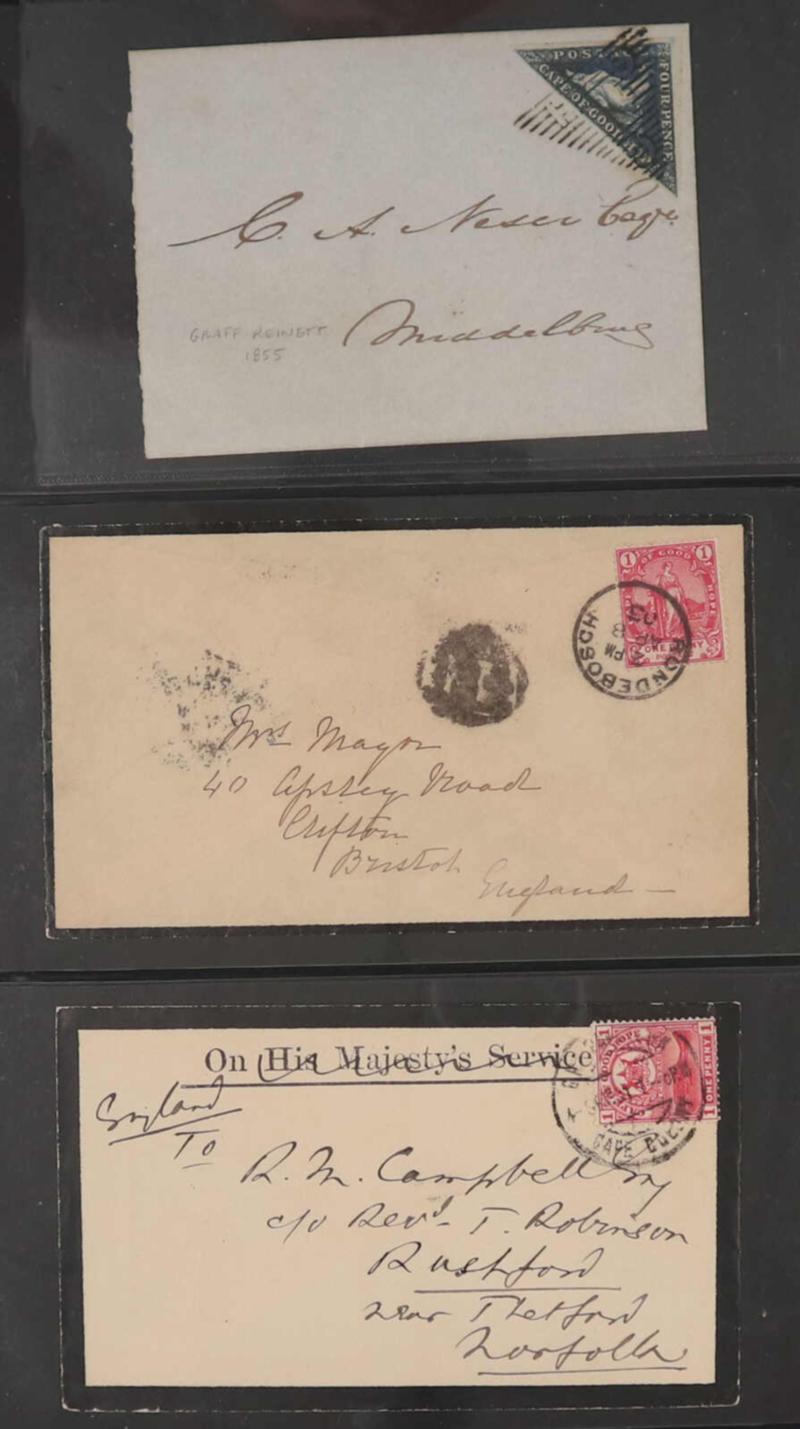 POS
CAPE OF GOO
FOUR PENCE
C. A. Neser Esqre.
Middelburg
GRAFF REINETT
1855
1 1
OF GOOD HOPE
ONE PENNY
RONDEBOSCH
2 PM
AP 8
03
Mrs Mayor
40 Apsley Road
Clifton
Bristol
England
On His Majesty's Service
GOOD HOPE
1 1
ONE PENNY
CAPE
England
To
R. M. Campbell Esq
c/o Revd. T. Robinson
Rushford
near Thetford
Norfolk